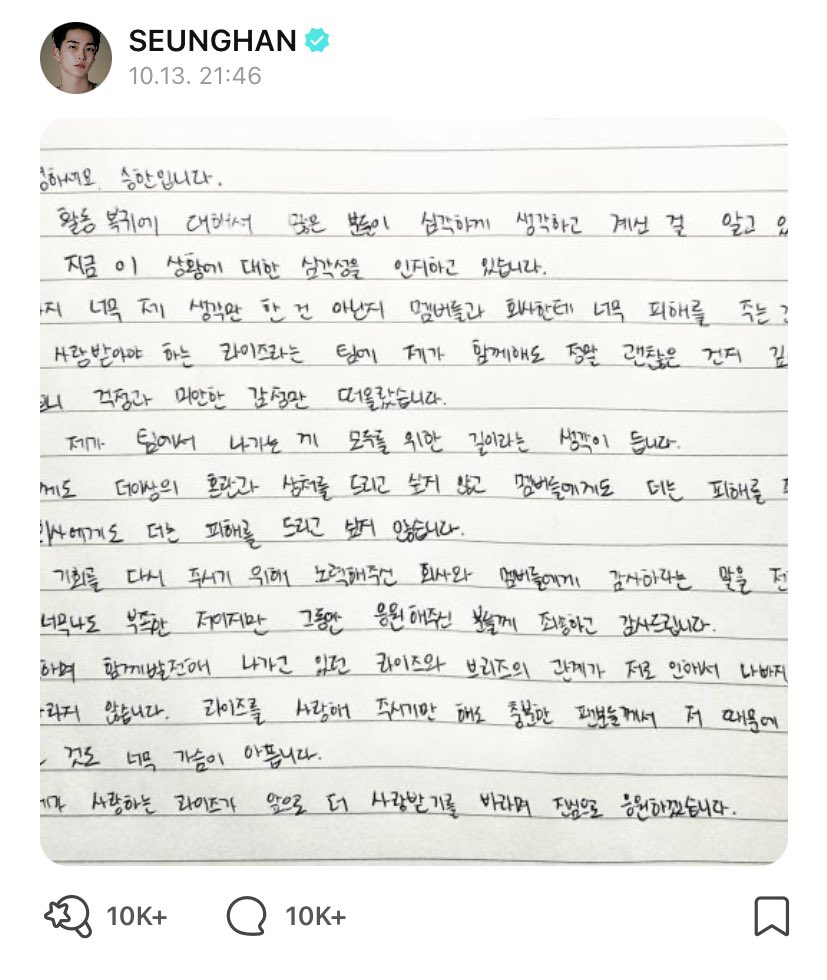 SEUNGHAN
10.13. 21:46
승한입니다.
활동 복귀에 대해서 많은 분들이 심각하게 생각하고 계신 걸 알고
지금 이 상황에 대한 심각성을 인지하고 있습니다.
너무 제 생각만 한 건 아닌지 멤버들과 회사한테 너무 피해를 주는
사랑받아야 하는 라이즈라는 팀에 제가 함께해도 정말 괜찮은 건지
걱정과 미안한 감정만 떠올랐습니다.
제가 팀에서 나가는 게 모두를 위한 길이라는 생각이 듭니다.
더이상의 혼란과 상처를 드리고 싶지 않고 멤버들에게도 더는 피해를
더는 피해를 드리고 싶지 않습니다.
기회를 다시 주시기 위해 노력해주신 회사와 멤버들에게 감사하다는 말을
너무나도 부족한 저이지만 그동안 응원해주신 분들께 죄송하고 감사드립니다.
함께발전해 나가고 있던 라이즈와 브리즈의 관계가 저로 인해서 나빠지
않습니다. 라이즈를 사랑해 주시기만 해도 충분한 팬분들께서 저 때문에
것도 너무 가슴이 아픕니다.
사랑하는 라이즈가 앞으로 더 사랑받기를 바라며 진심으로 응원하겠습니다.
10K+ 10K+